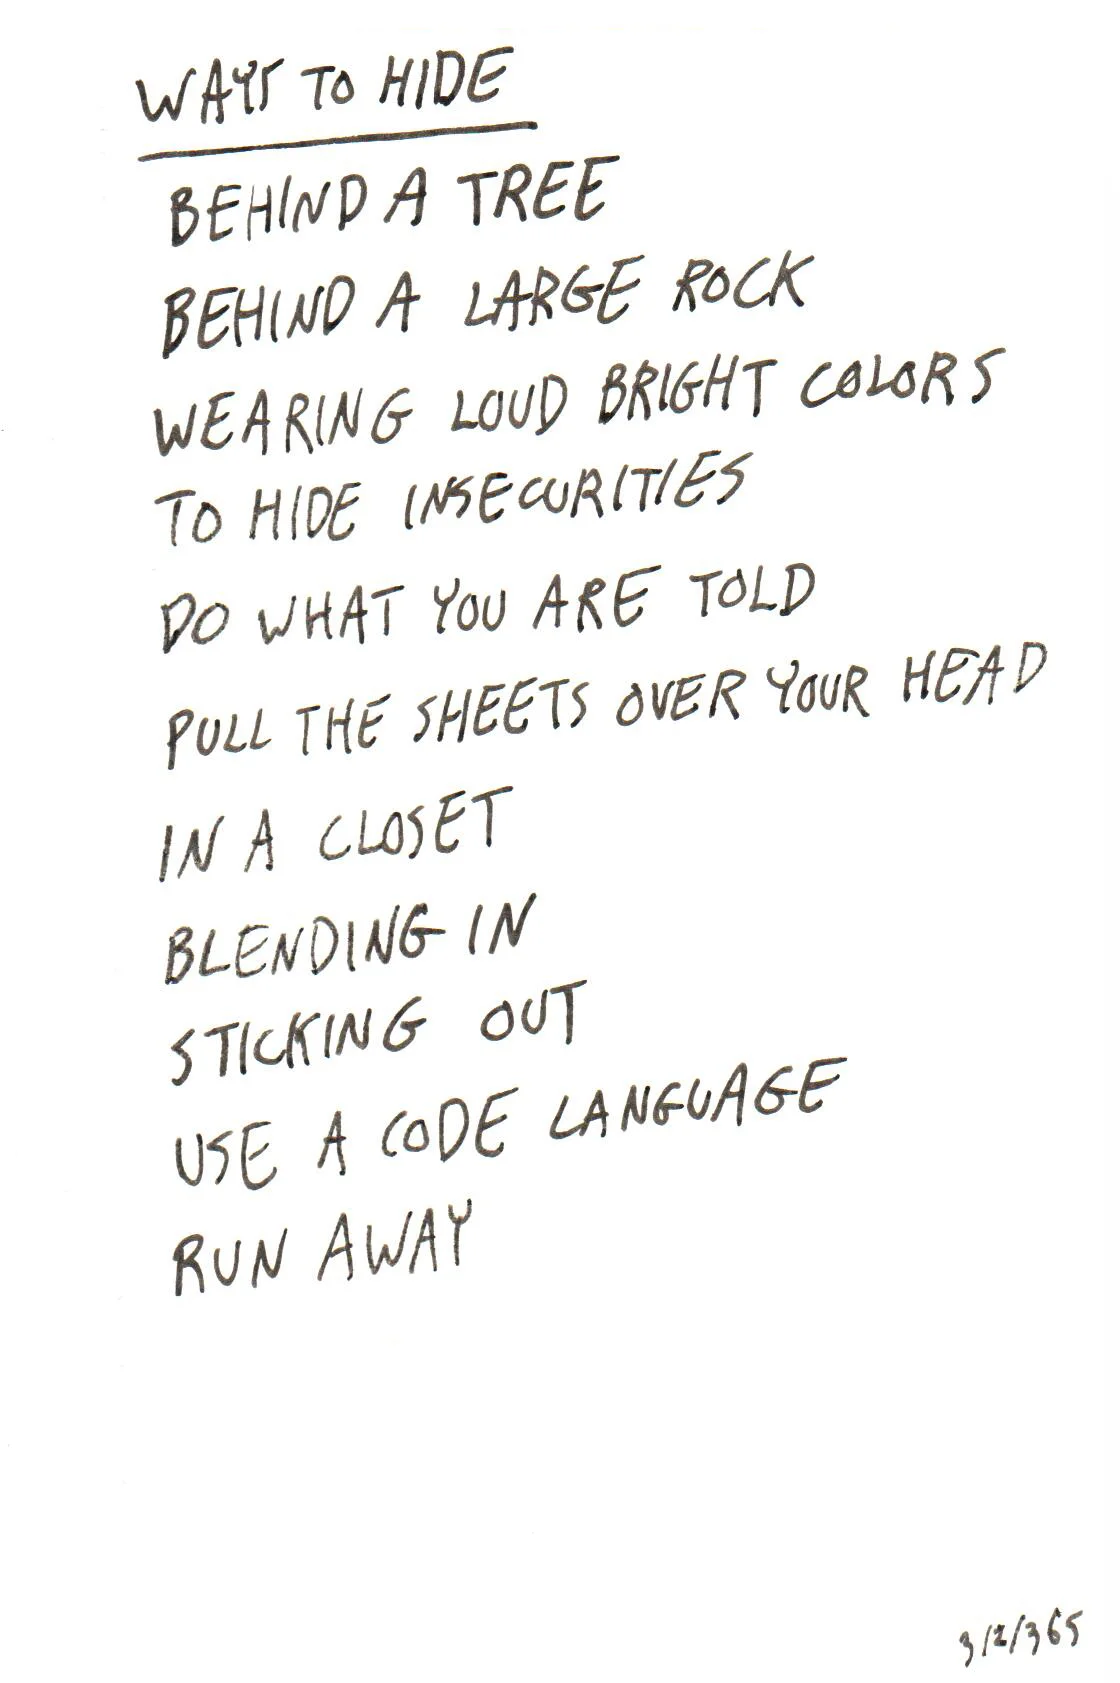 WAYS TO HIDE
BEHIND A TREE
BEHIND A LARGE ROCK
WEARING LOUD BRIGHT COLORS
TO HIDE INSECURITIES
DO WHAT YOU ARE TOLD
PULL THE SHEETS OVER YOUR HEAD
IN A CLOSET
BLENDING IN
STICKING OUT
USE A CODE LANGUAGE
RUN AWAY
312/365